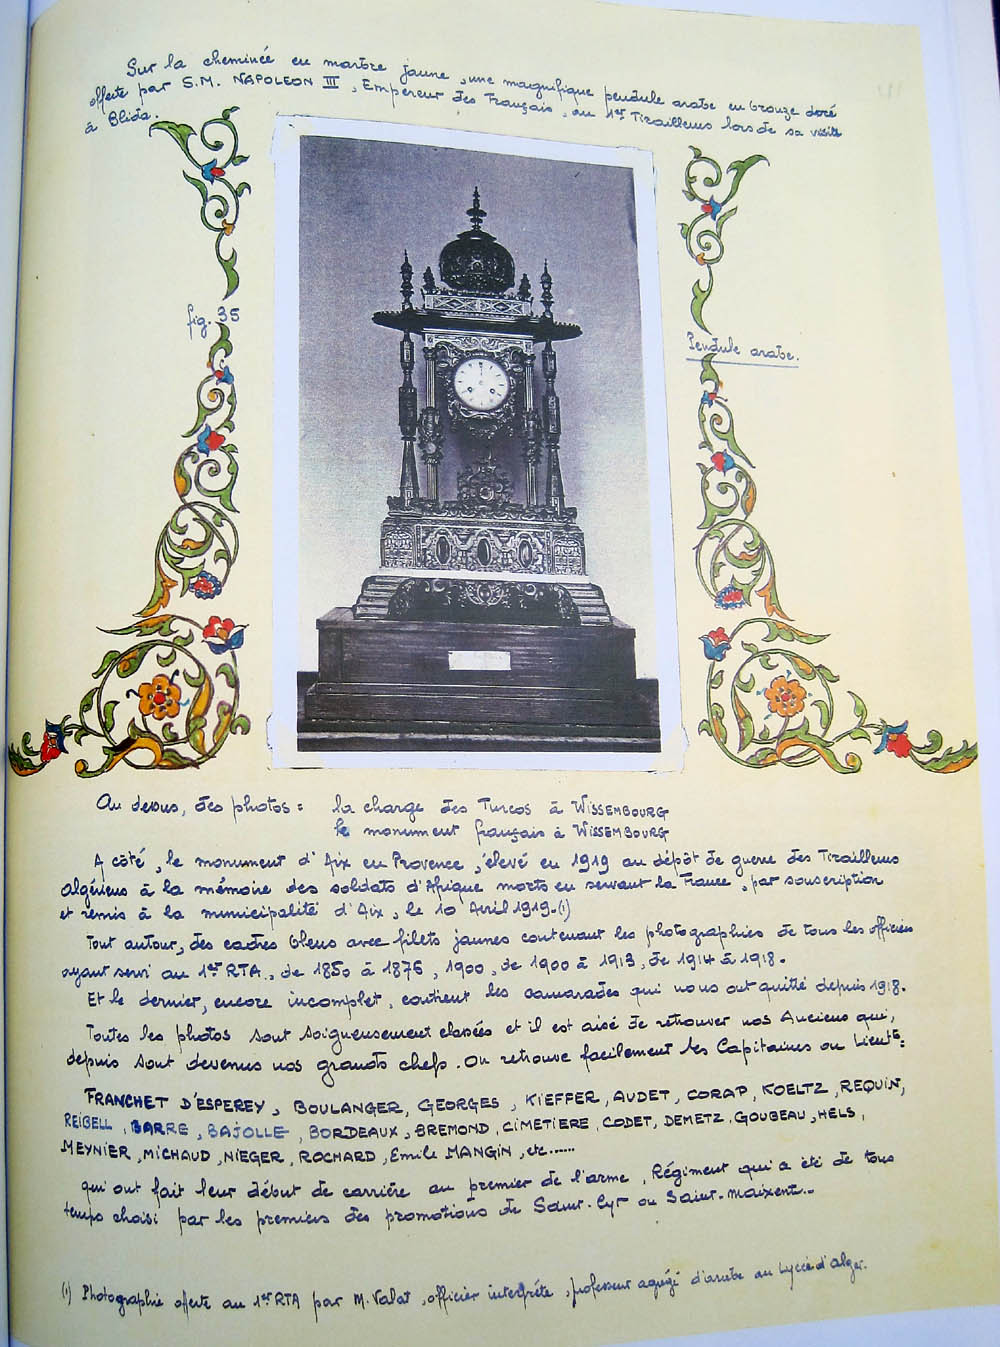 Sur la cheminée en marbre jaune, une magnifique pendule arabe en bronze doré
offerte par S.M. NAPOLEON III, Empereur des Français, au 1er Tirailleurs lors de sa visite
à Blida.
fig. 35
Pendule arabe.
Au dessus, des photos : la charge des Turcos à WISSEMBOURG
le monument français à WISSEMBOURG
A côté, le monument d'Aix en Provence, élevé en 1919 au dépôt de guerre des Tirailleurs
Algériens à la mémoire des soldats d'Afrique morts en servant la France, par souscription
et remis à la municipalité d'Aix, le 10 Avril 1919.(1)
Tout autour, des cadres bleus avec filets jaunes contenant les photographies de tous les officiers
ayant servi au 1er RTA., de 1850 à 1876, 1900, de 1900 à 1913, de 1914 à 1918.
Et le dernier, encore incomplet, contient les camarades qui nous ont quitté depuis 1918.
Toutes les photos sont soigneusement classées et il est aisé de retrouver nos Anciens qui,
depuis sont devenus nos grands chefs. On retrouve facilement les Capitaines ou Lieutts:
FRANCHET D'ESPEREY, BOULANGER, GEORGES, KIEFFER, AUDET, CORAP, KOELTZ, REQUIN,
REIBELL, BARRE, BAJOLLE, BORDEAUX, BREMOND, CIMETIERE, CODET, DEMETZ, GOUBEAU, HELS,
MEYNIER, MICHAUD, NIEGER, ROCHARD, Emile MANGIN, etc......
qui ont fait leur début de carrière au premier de l'arme, Régiment qui a été de tous
temps choisi par les premiers des promotions de Saint-Cyr ou Saint-Maixent..
(1) Photographie offerte au 1er RTA par M. Valat, officier interprète, professeur agrégé d'arabe au Lycée d'Alger.